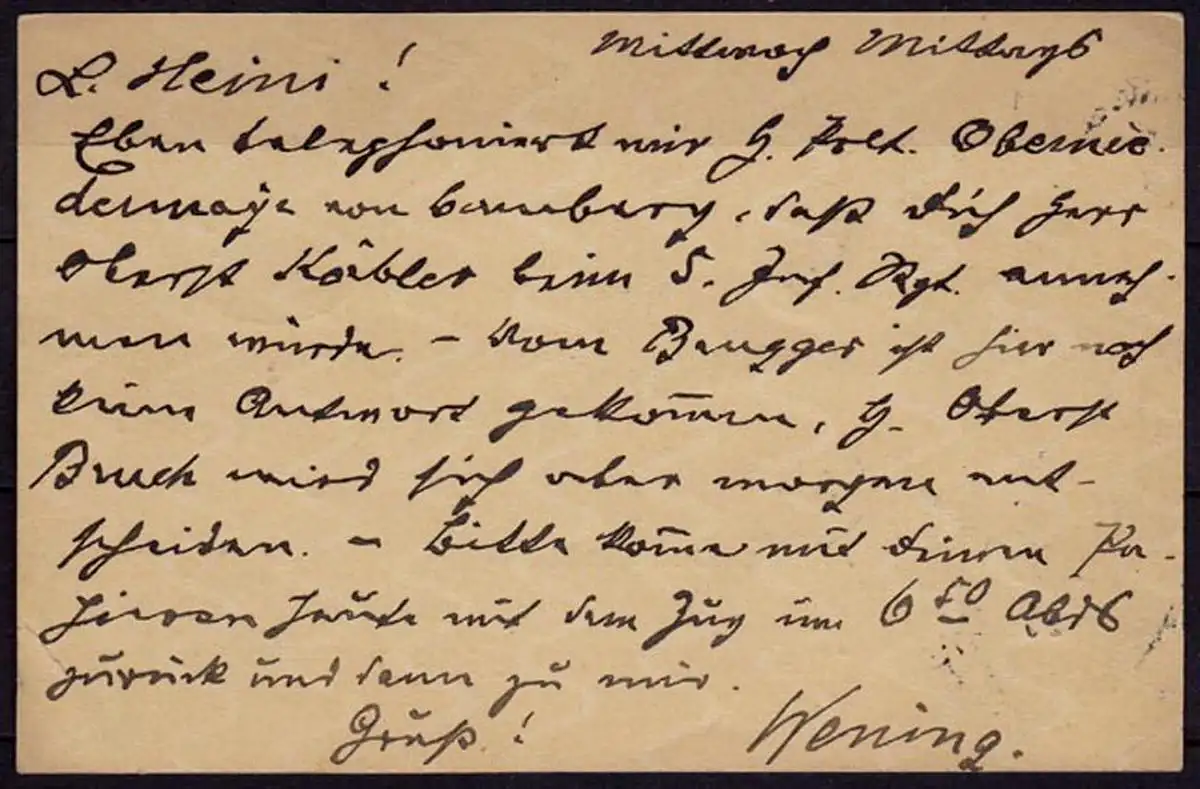 Mittwoch Mittags
L. Heini!
Eben telephoniert mir H. Oblt. Obernie-
dermayr von Bamberg, daß Dich Herr
Oberst Käbler beim 5. Inf. Rgt. anneh-
men würde. – Vom Brugger ist hier noch
keine Antwort gekom̄en, H. Oberst
Bruch wird sich aber morgen ent-
scheiden. – Bitte kom̄e mit deinen Pa-
pieren heute mit dem Zug um 6 50 Abds
zurück und dann zu mir.
Gruß! Wening.